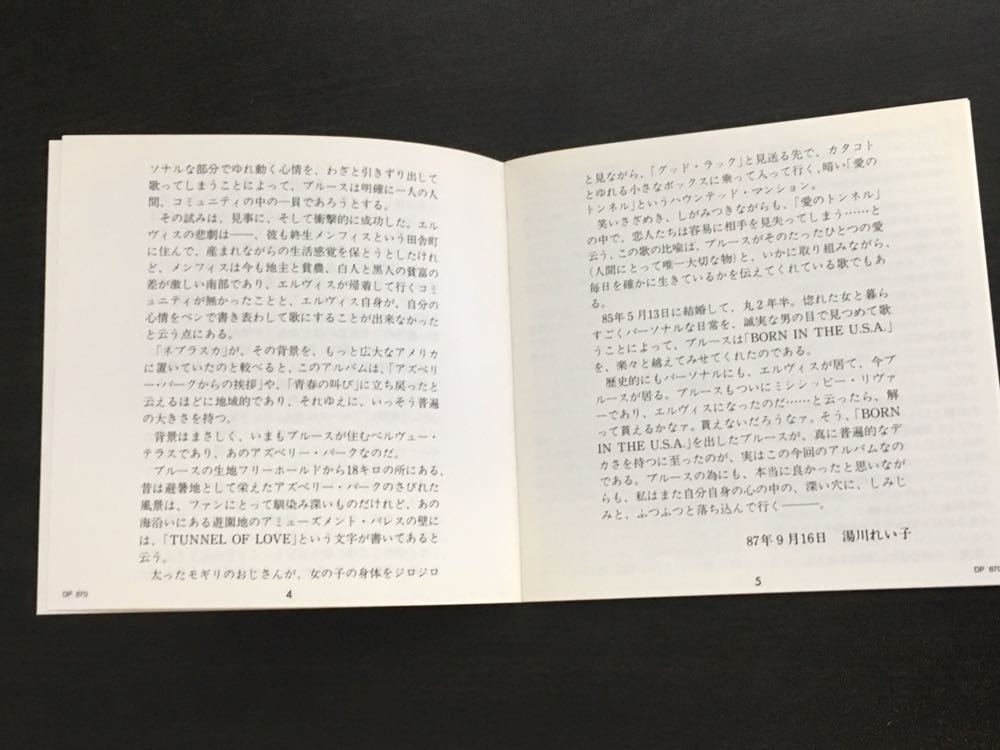 ソナルな部分でゆれ動く心情を、わざと引きずり出して
歌ってしまうことによって、ブルースは明確に一人の人
間、コミュニティの中の一員であろうとする。
その試みは、見事に、そして衝撃的に成功した。エル
ヴィスの悲劇は——、彼も終生メンフィスという田舎町
に住んで、産まれながらの生活感覚を保とうとしたけれ
ど、メンフィスは今も地主と貧農、白人と黒人の貧富の
差が激しい南部であり、エルヴィスが帰着して行くコミ
ュニティが無かったことと、エルヴィス自身が、自分の
心情をペンで書き表わして歌にすることが出来なかった
と云う点にある。
「ネブラスカ」が、その背景を、もっと広大なアメリカ
に置いていたのと較べると、このアルバムは、「アズベリ
ー・パークからの挨拶」や、「青春の叫び」に立ち戻ったと
云えるほどに地域的であり、それゆえに、いっそう普遍
の大きさを持つ。
背景はまさしく、いまもブルースが住むベルヴュー・
テラスであり、あのアズベリー・パークなのだ。
ブルースの生地フリーホールドから18キロの所にある、
昔は避暑地として栄えたアズベリー・パークのさびれた
風景は、ファンにとって馴染み深いものだけれど、あの
海沿いにある遊園地のアミューズメント・パレスの壁に
は、「TUNNEL OF LOVE」という文字が書いてあると
云う。
太ったモギリのおじさんが、女の子の身体をジロジロ
DP 870
4
と見ながら、「グッド・ラック」と見送る先で、カタコト
とゆれる小さなボックスに乗って入って行く、暗い「愛の
トンネル」というハウンテッド・マンション。
笑いさざめき、しがみつきながらも、「愛のトンネル」
の中で、恋人たちは容易に相手を見失ってしまう……と
云う、この歌の比喩は、ブルースがそのたったひとつの愛
(人間にとって唯一大切な物)と、いかに取り組みながら、
毎日を確かに生きているかを伝えてくれている歌でもあ
る。
85年5月13日に結婚して、丸2年半。惚れた女と暮ら
すごくパーソナルな日常を、誠実な男の目で見つめて歌
うことによって、ブルースは「BORN IN THE U.S.A.」
を、楽々と越えてみせてくれたのである。
歴史的にもパーソナルにも、エルヴィスが居て、今ブ
ルースが居る。ブルースもついにミシシッピー・リヴァ
ーであり、エルヴィスになったのだ……と云ったら、解
って貰えるかなァ。貰えないだろうなァ。そう、「BORN
IN THE U.S.A.」を出したブルースが、真に普遍的なデ
カさを持つに至ったのが、実はこの今回のアルバムなの
である。ブルースの為にも、本当に良かったと思いなが
らも、私はまた自分自身の心の中の、深い穴に、しみじ
みと、ふつふつと落ち込んで行く———。
87年9月16日　湯川れい子
5
DP 870